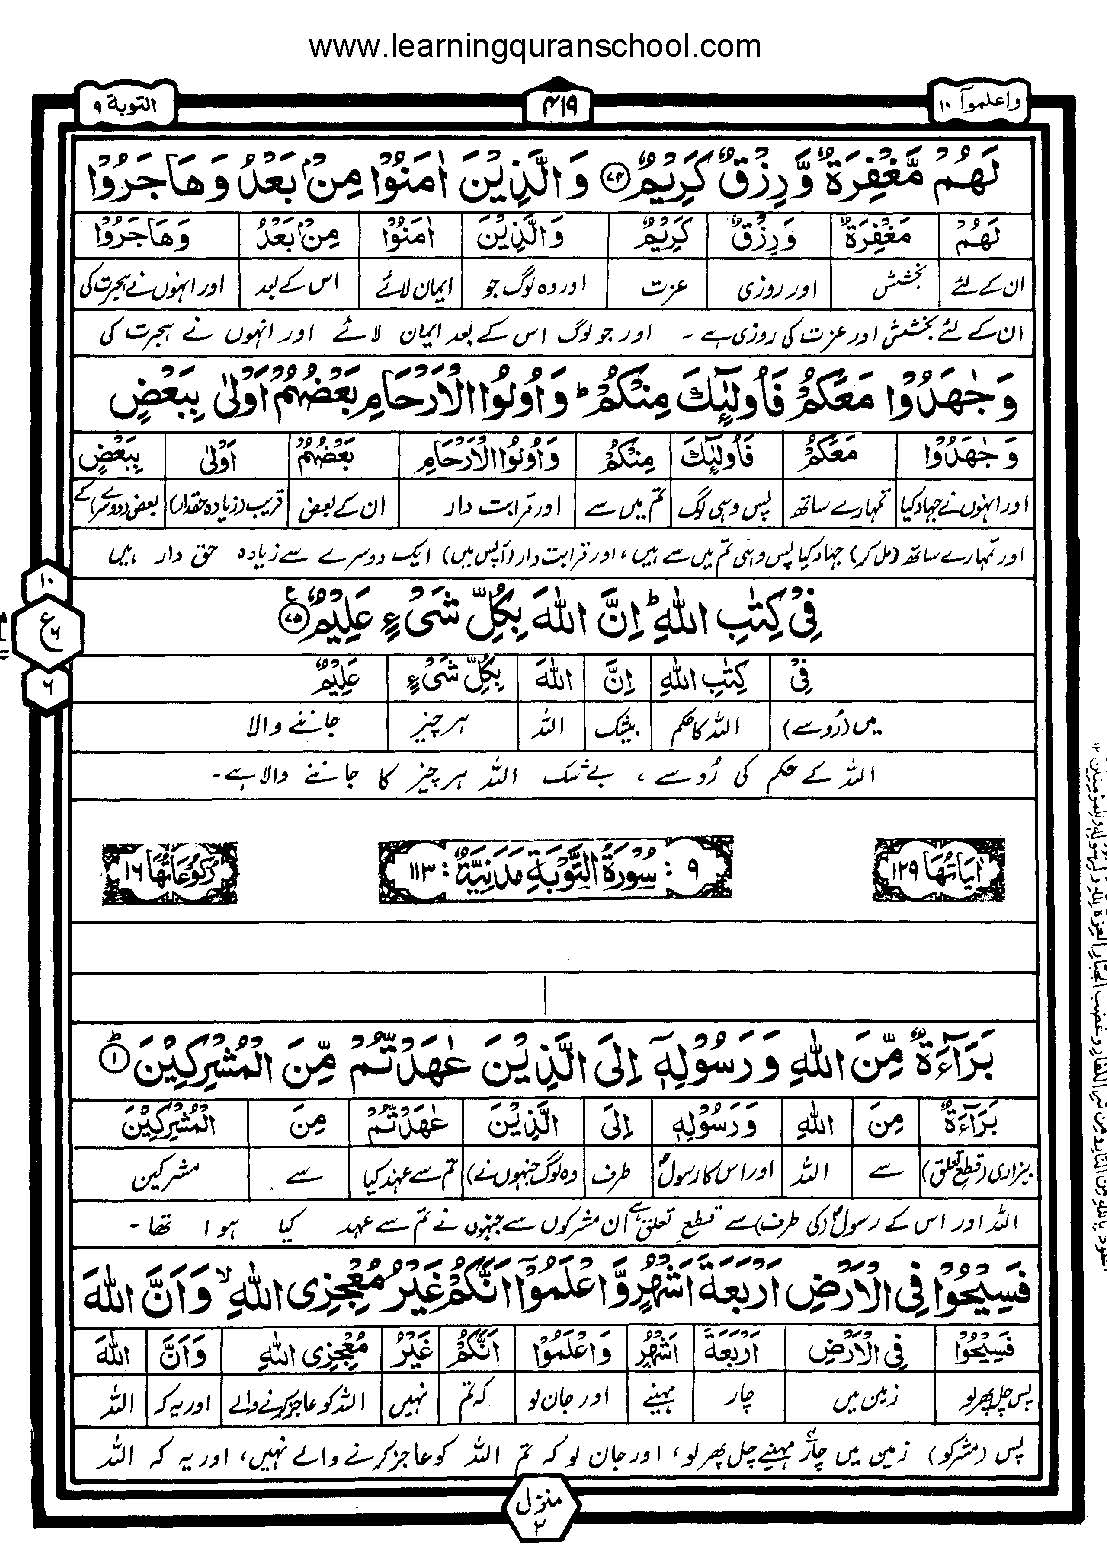 www.learningquranschool.com
واعلموآ ۱۰
۴۱۹
التوبة ۹
لَهُمْ مَّغْفِرَةٌ وَّرِزْقٌ كَرِيْمٌ ۝۷۴ وَالَّذِيْنَ اٰمَنُوْا مِنْۢ بَعْدُ وَهَاجَرُوْا
لَهُمْ مَغْفِرَةٌ وَرِزْقٌ كَرِيْمٌ وَالَّذِيْنَ اٰمَنُوْا مِنْۢ بَعْدُ وَهَاجَرُوْا
ان کے لئے بخشش اور روزی عزت اور وہ لوگ جو ایمان لائے اس کے بعد اور انہوں نے ہجرت کی
ان کے لئے بخشش اور عزت کی روزی ہے ۔ اور جو لوگ اس کے بعد ایمان لائے اور انہوں نے ہجرت کی
وَجٰهَدُوْا مَعَكُمْ فَاُولٰٓئِكَ مِنْكُمْ ؕ وَاُولُوا الْاَرْحَامِ بَعْضُهُمْ اَوْلٰى بِبَعْضٍ
وَجٰهَدُوْا مَعَكُمْ فَاُولٰٓئِكَ مِنْكُمْ وَاُولُوا الْاَرْحَامِ بَعْضُهُمْ اَوْلٰى بِبَعْضٍ
اور انہوں نے جہاد کیا تمہارے ساتھ پس وہی لوگ تم میں سے اور قرابت دار ان کے بعض قریب (زیادہ حقدار) بعض (دوسرے) کے
اور تمہارے ساتھ (مل کر) جہاد کیا پس وہی تم میں سے ہیں، اور قرابت دار (آپس میں) ایک دوسرے سے زیادہ حق دار ہیں
فِيْ كِتٰبِ اللّٰهِ ؕ اِنَّ اللّٰهَ بِكُلِّ شَيْءٍ عَلِيْمٌ ۝۷۵
۱۰
ع ۶
۶
فِيْ كِتٰبِ اللّٰهِ اِنَّ اللّٰهَ بِكُلِّ شَيْءٍ عَلِيْمٌ
میں (رُو سے) اللہ کا حکم بیشک اللہ ہر چیز جاننے والا
اللہ کے حکم کی رُو سے، بے شک اللہ ہر چیز کا جاننے والا ہے۔
اٰيَاتُهَا ۱۲۹
۹ : سُوْرَةُ التَّوْبَةِ مَدَنِيَّةٌ : ۱۱۳
رُكُوْعَاتُهَا ۱۶
بَرَآءَةٌ مِّنَ اللّٰهِ وَرَسُوْلِهٖٓ اِلَى الَّذِيْنَ عٰهَدْتُّمْ مِّنَ الْمُشْرِكِيْنَ ؕ۝۱
بَرَآءَةٌ مِنَ اللّٰهِ وَرَسُوْلِهٖ اِلَى الَّذِيْنَ عٰهَدْتُّمْ مِنَ الْمُشْرِكِيْنَ
بیزاری (قطع تعلق) سے اللہ اور اس کا رسولؐ طرف وہ لوگ جنہوں نے تم سے عہد کیا سے مشرکین
اللہ اور اس کے رسولؐ (کی طرف) سے قطع تعلق ہے اُن مشرکوں سے جنہوں نے تم سے عہد کیا ہوا تھا ۔
فَسِيْحُوْا فِي الْاَرْضِ اَرْبَعَةَ اَشْهُرٍ وَّاعْلَمُوْٓا اَنَّكُمْ غَيْرُ مُعْجِزِي اللّٰهِ ۙ وَاَنَّ اللّٰهَ
فَسِيْحُوْا فِي الْاَرْضِ اَرْبَعَةَ اَشْهُرٍ وَاعْلَمُوْٓا اَنَّكُمْ غَيْرُ مُعْجِزِي اللّٰهِ وَاَنَّ اللّٰهَ
پس چل پھر لو زمین میں چار مہینے اور جان لو کہ تم نہیں اللہ کو عاجز کرنے والے اور یہ کہ اللہ
پس (مشرکو) زمین میں چار مہینے چل پھر لو، اور جان لو کہ تم اللہ کو عاجز کرنے والے نہیں، اور یہ کہ اللہ
منزل
۲